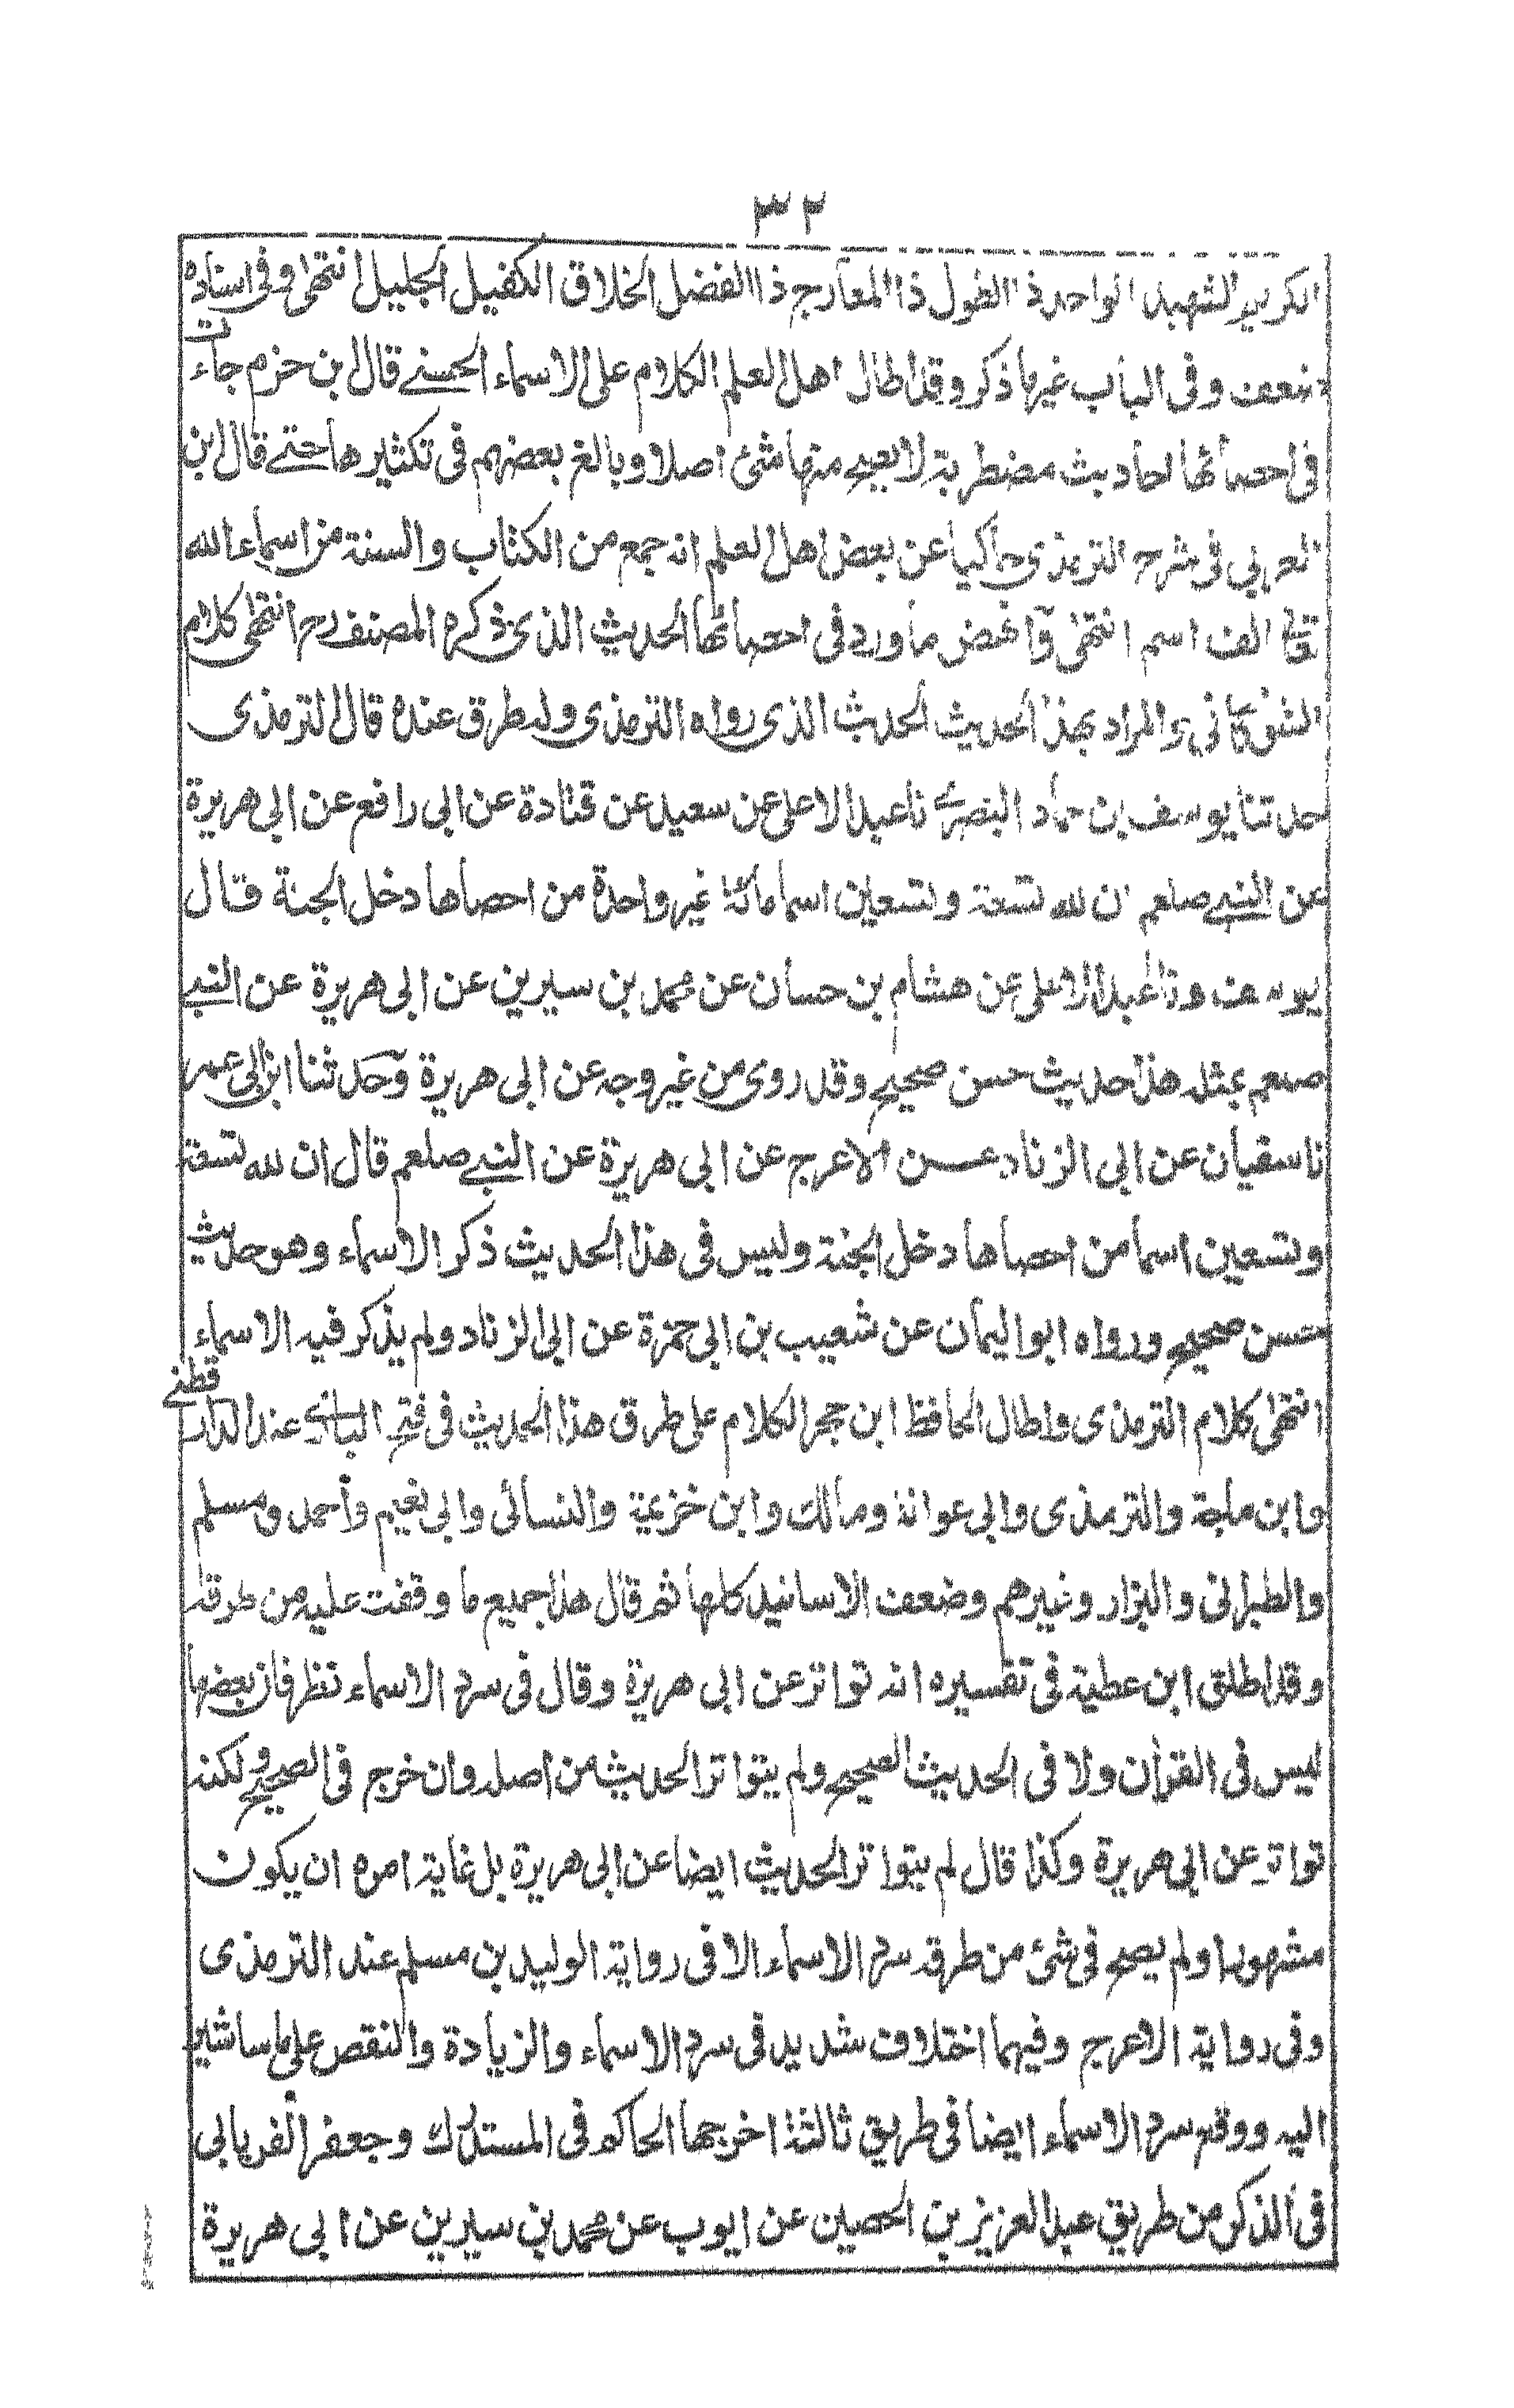 ٣٢
الكريم الشهيد الواحد ذا الطول ذا المعارج ذا الفضل الخلاق الكفيل الجليل انتهى وفى اسناده
ضعف وفى الباب غيرها ذكر وقد اطال اهل العلم الكلام على الاسماء الحسنى قال ابن حزم جاءت
فى احصائها احاديث مضطربة لا يصح منها شئ اصلا وبالغ بعضهم فى تكثيرها حتى قال ابن
العربي فى شرح الترمذى حاكيا عن بعض اهل العلم انه جمع من الكتاب والسنة من اسماء الله
تعالى الف اسم انتهى وانهض ما ورد فى احصائها الحديث الذى ذكره المصنف رح انتهى كلام
الشوكانى والمراد بهذا الحديث الحديث الذى رواه الترمذى وله طرق عنده قال الترمذى
حدثنا يوسف بن حماد البصرى نا عبد الاعلى عن سعيد عن قتادة عن ابى رافع عن ابى هريرة
عن النبى صلعم ان لله تسعة وتسعين اسما مائة غير واحدة من احصاها دخل الجنة قال
يوسف ونا عبد الاعلى عن هشام بن حسان عن محمد بن سيرين عن ابى هريرة عن النبى
صلعم بمثله هذا حديث حسن صحيح وقد روى من غير وجه عن ابى هريرة وحدثنا ابن ابى عمر
نا سفيان عن ابى الزناد عن الاعرج عن ابى هريرة عن النبى صلعم قال ان لله تسعة
وتسعين اسما من احصاها دخل الجنة وليس فى هذا الحديث ذكر الاسماء وهو حديث
حسن صحيح ورواه ابو اليمان عن شعيب بن ابى حمزة عن ابى الزناد ولم يذكر فيه الاسماء
انتهى كلام الترمذى واطال الحافظ ابن حجر الكلام على طرق هذا الحديث فى فتح البارى عند الدارقطنى
وابن ماجة والترمذى وابى عوانة ومالك وابن خزيمة والنسائى وابى نعيم واحمد ومسلم
والطبرانى والبزار وغيرهم وضعف الاسانيد كلها ثم قال هذا جميع ما وقفت عليه من طرقه
وقد اطلق ابن عطية فى تفسيره انه تواتر عن ابى هريرة وقال فى سرد الاسماء نظر فان بعضها
ليس فى القرآن ولا فى الحديث الصحيح ولم يتواتر الحديث من اصله وان خرج فى الصحيح ولكنه
تواتر عن ابى هريرة وكذا قال لم يتواتر الحديث ايضا عن ابى هريرة بل غاية امره ان يكون
مشهورا ولم يصح فى شئ من طرقه سرد الاسماء الا فى رواية الوليد بن مسلم عند الترمذى
وفى رواية الاعرج وفيهما اختلاف شديد فى سرد الاسماء والزيادة والنقص على ما ساشير
اليه ووقع سرد الاسماء ايضا فى طريق ثالثة اخرجها الحاكم فى المستدرك وجعفر الفريابى
فى الذكر من طريق عبد العزيز بن الحصين عن ايوب عن محمد بن سيرين عن ابى هريرة